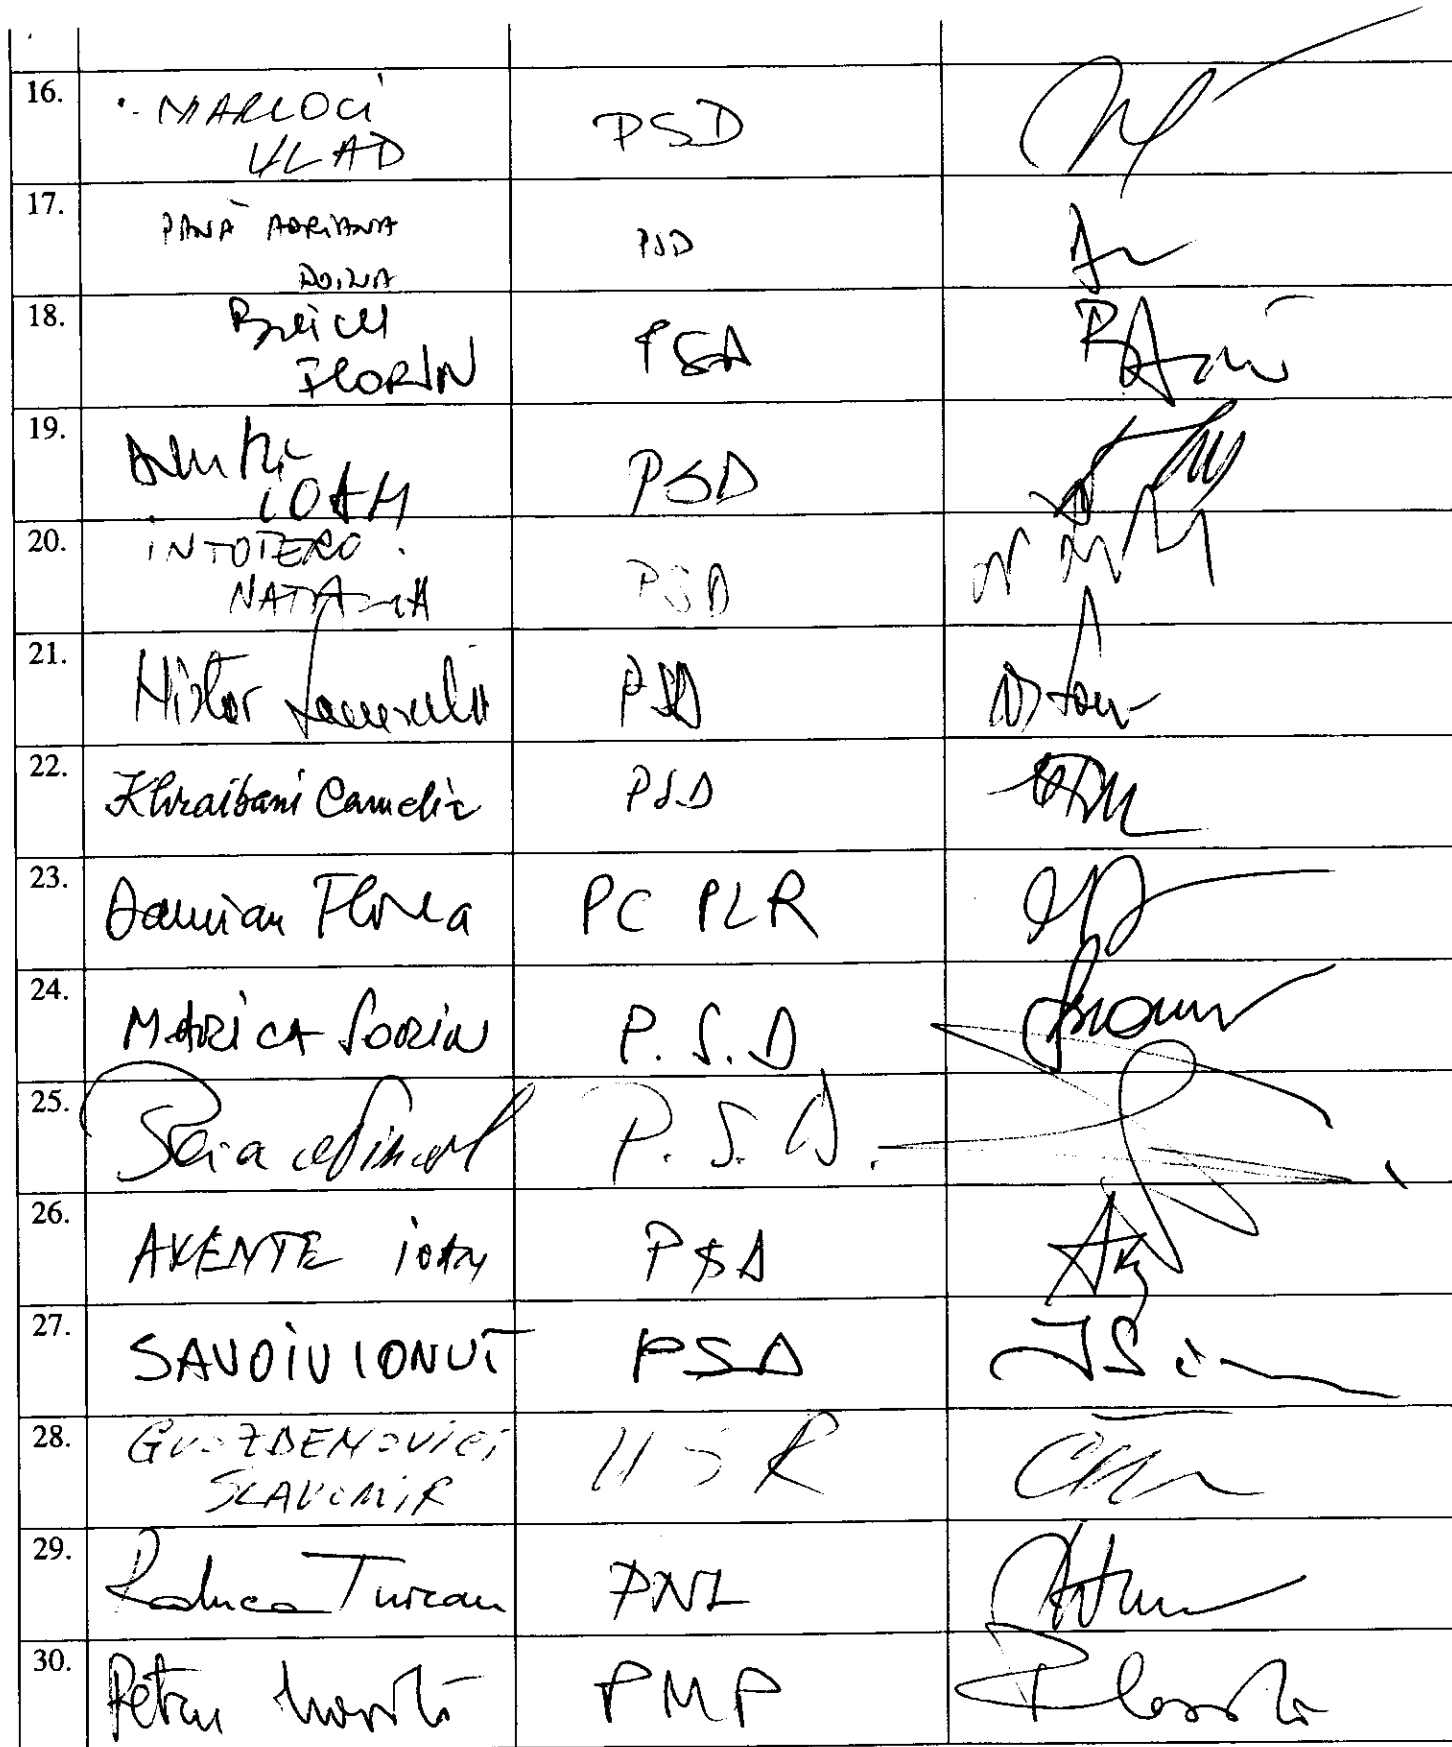 16. MARCOCI PSD
VLAD
17. PANĂ ADRIANA PSD
DOINA
18. PSD
FLORIN
19. PSD
IOAN
20. INTOTERO PSD
NATALIA
21. Nistor Laurențiu PSD
22. Khraibani Camelia PSD
23. Damian Florea PC PLR
24. MARICA SORIN P.S.D
25. P.S.D.
26. AXENTE IOAN PSD
27. SAVOIU IONUT PSD
28. GVOZDENOVICI USR
SLAVOMIR
29. Raluca Turcan PNL
30. Petru PMP